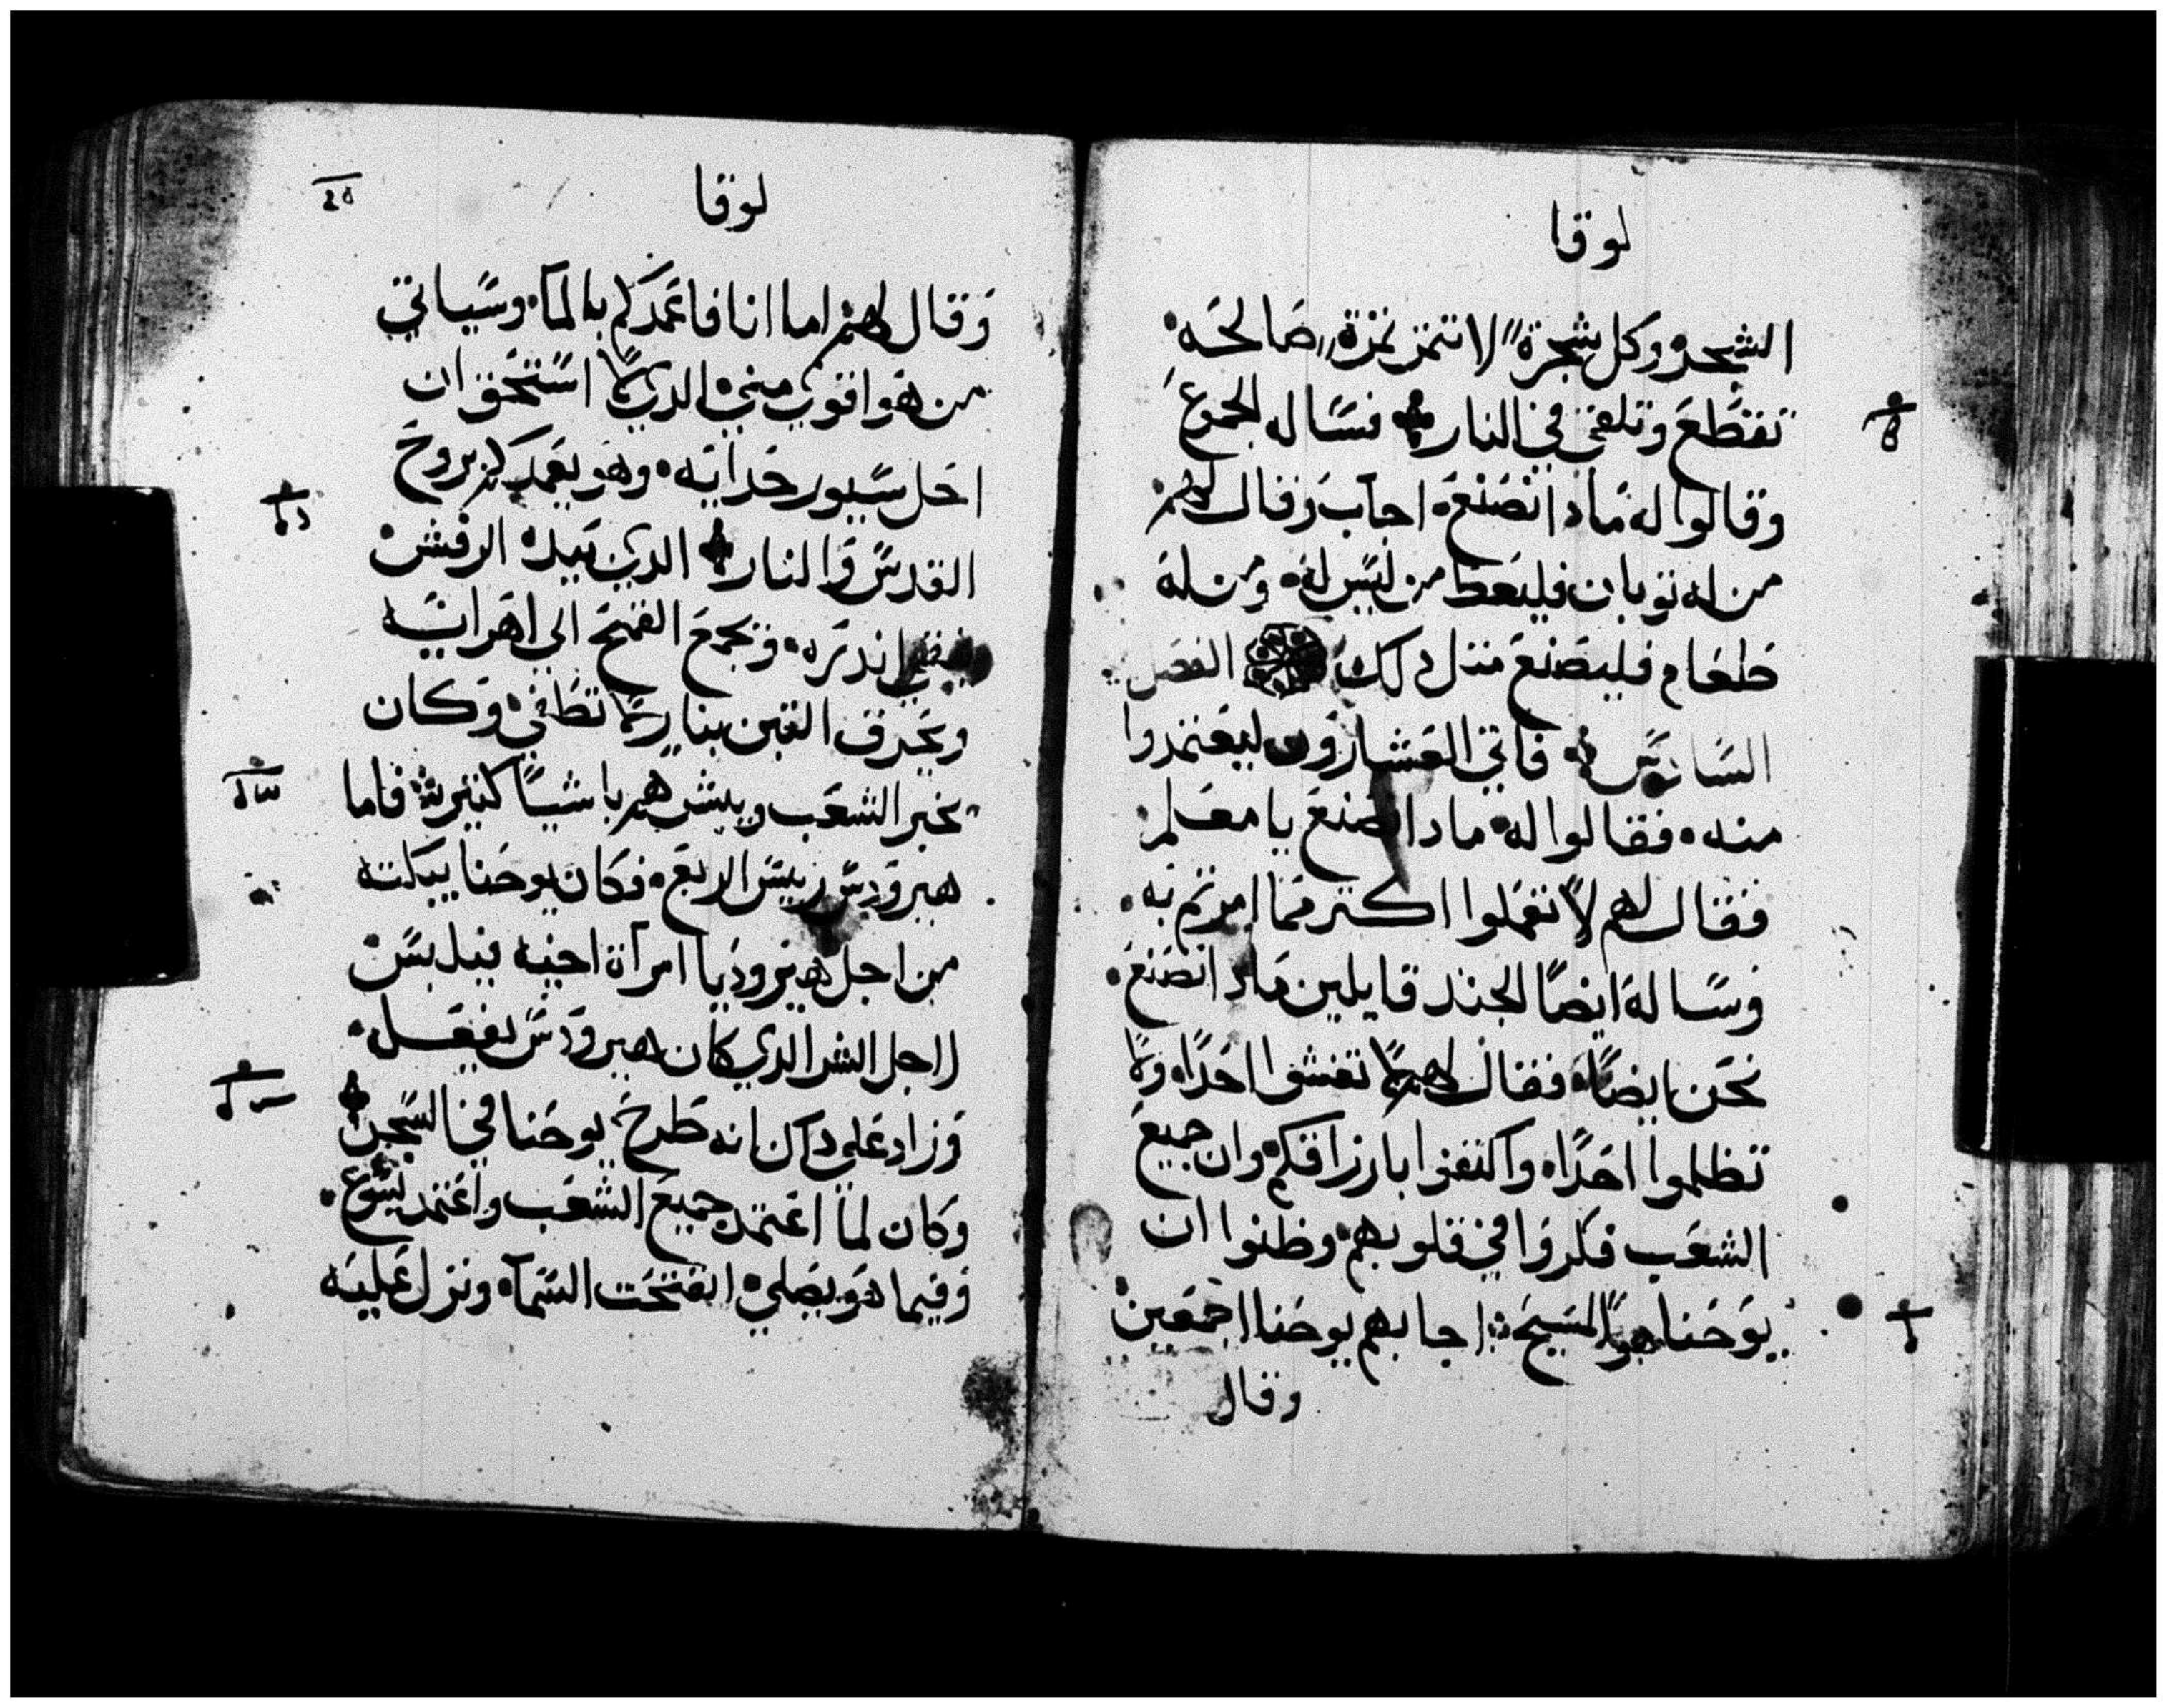 لوقا
الشجره وكل شجرة لا تثمر ثمرة صالحه
تقطع وتلقي في النار فساله الجموع
وقالوا له مادا نصنع اجاب وقال لهم
من له توبان فليعط من ليس له ومن له
طعام فليصنع متل دلك الفصل
السادس فاتي العشارون ليعتمدوا
منه فقالوا له مادا نصنع يا معلم
فقال لهم لا تعملوا اكتر مما امرتم به
وساله ايضا الجند قايلين مادا نصنع
نحن ايضا فقال لهم لا تغشوا احدا ولا
تظلموا احدا واكتفوا بارزاقكم وان جميع
الشعب فكروا في قلوبهم وظنوا ان
يوحنا هو المسيح اجابهم يوحنا اجمعين
وقال
لوقا
وقال لهم اما انا فاعمدكم بالمآ وسياتي
من هو اقوي مني الدي لا استحق ان
احل سيور حدايه وهو يعمدكم بروح
القدس والنار الدي بيده الرفش
ينقي اندره ويجمع القمح الي اهرايه
ويحرق التبن بنار لا تطفي وكان
يخبر الشعب ويبشرهم باشيا كتيرة فاما
هيرودس رييس الربع فكان يوحنا يبكته
من اجل هيروديا امرآة اخيه فيلبس
لاجل الشر الدي كان هيرودس يفعل
وزاد علي دلك انه طرح يوحنا في السجن
وكان لما اعتمد جميع الشعب واعتمد يسوع
وفيما هو يصلي انفتحت السمآ ونزل عليه